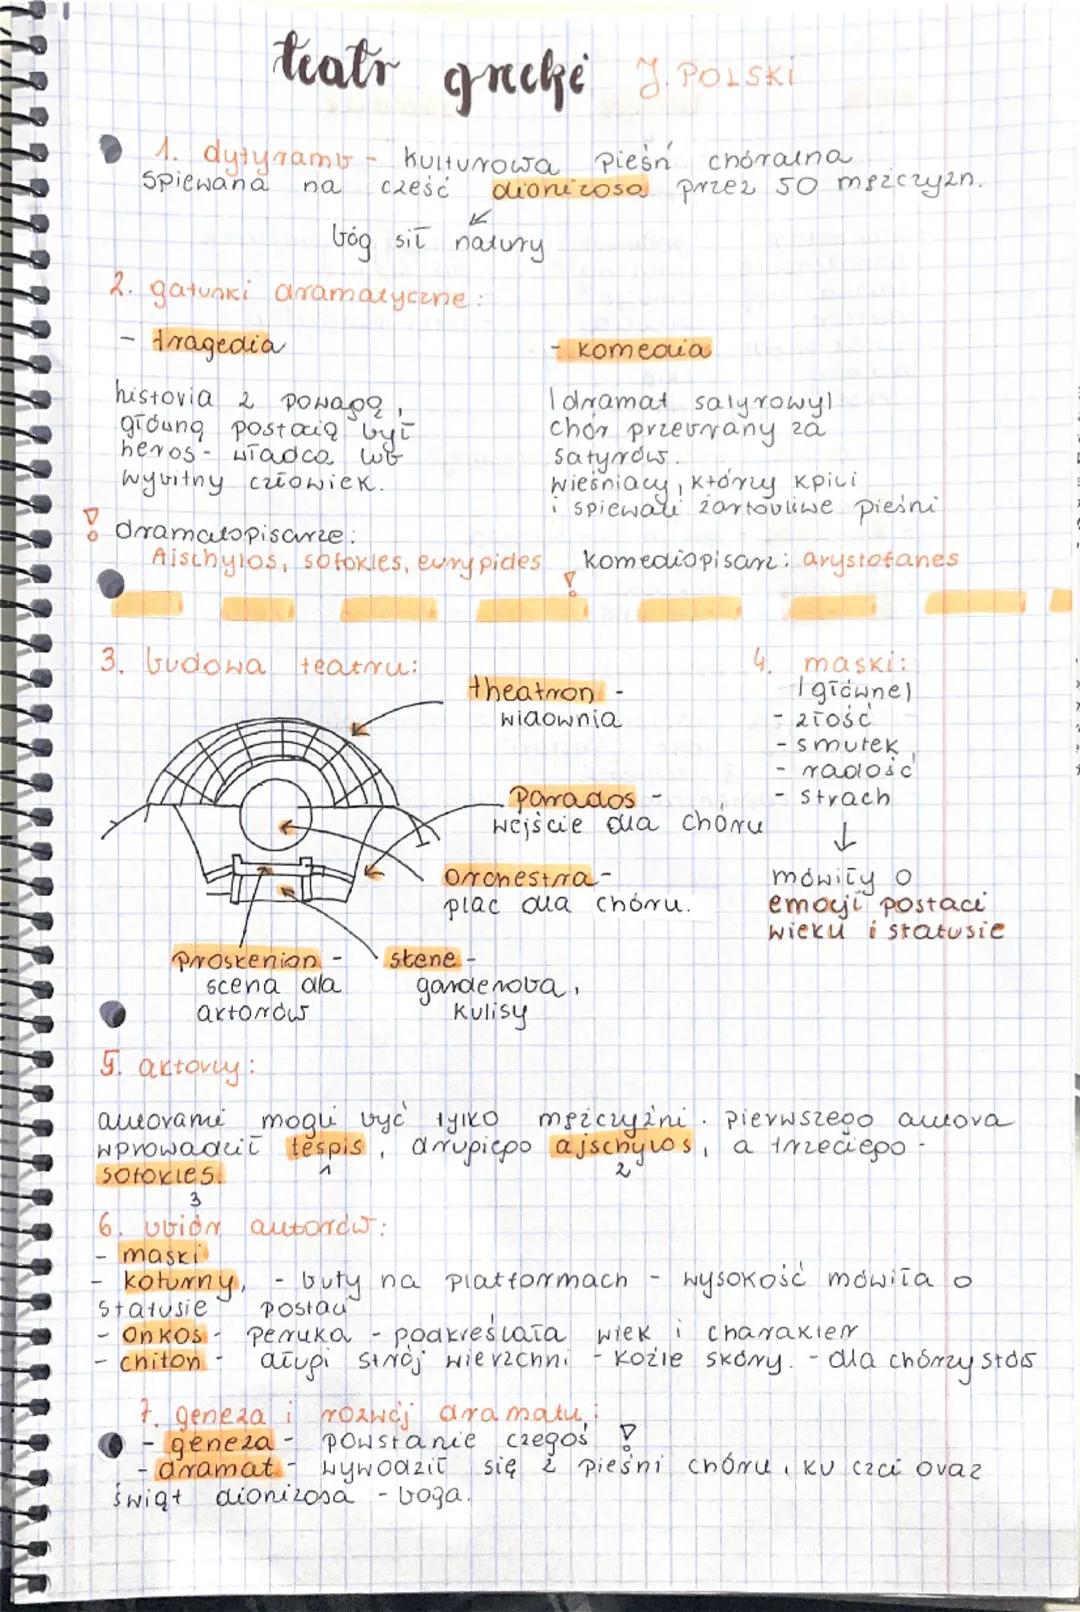 teatr grecki J. POLSKI
1. dytyramb - kulturowa pieśń chóralna
śpiewana na cześć dionizosa przez 50 mężczyzn.
bóg sił natury
2. gatunki dramatyczne:
- tragedia
historia z powagą,
główną postacią był
heros - władca lub
wybitny człowiek.
- komedia
(dramat satyrowy)
chór przebrany za
satyrów.
wieśniacy, którzy kpili
i śpiewali żartobliwe pieśni
! dramatopisarze:
Aischylos, sofokles, eurypides
! komediopisarz: arystofanes
3. budowa teatru:
theatron -
widownia
parados -
wejście dla chóru
orchestra -
plac dla chóru.
proskenion -
scena dla
aktorów
skene -
garderoba,
kulisy
4. maski:
(główne)
- złość
- smutek,
- radość
- strach
mówiły o
emocji postaci
wieku i statusie
5. aktorzy:
aktorami mogli być tylko mężczyźni. pierwszego aktora
wprowadził tespis, drugiego ajschylos, a trzeciego -
sofokles.
1
2
3
6. ubiór aktorów:
- maski
- koturny, - buty na platformach - wysokość mówiła o
statusie postaci
- onkos - peruka - podkreślała wiek i charakter
- chiton - długi strój wierzchni - kozie skóry. - dla chórzystów
7. geneza i rozwój dramatu:
- geneza - powstanie czegoś !
- dramat - wywodził się z pieśni chóru, ku czci oraz
świąt dionizosa - boga.